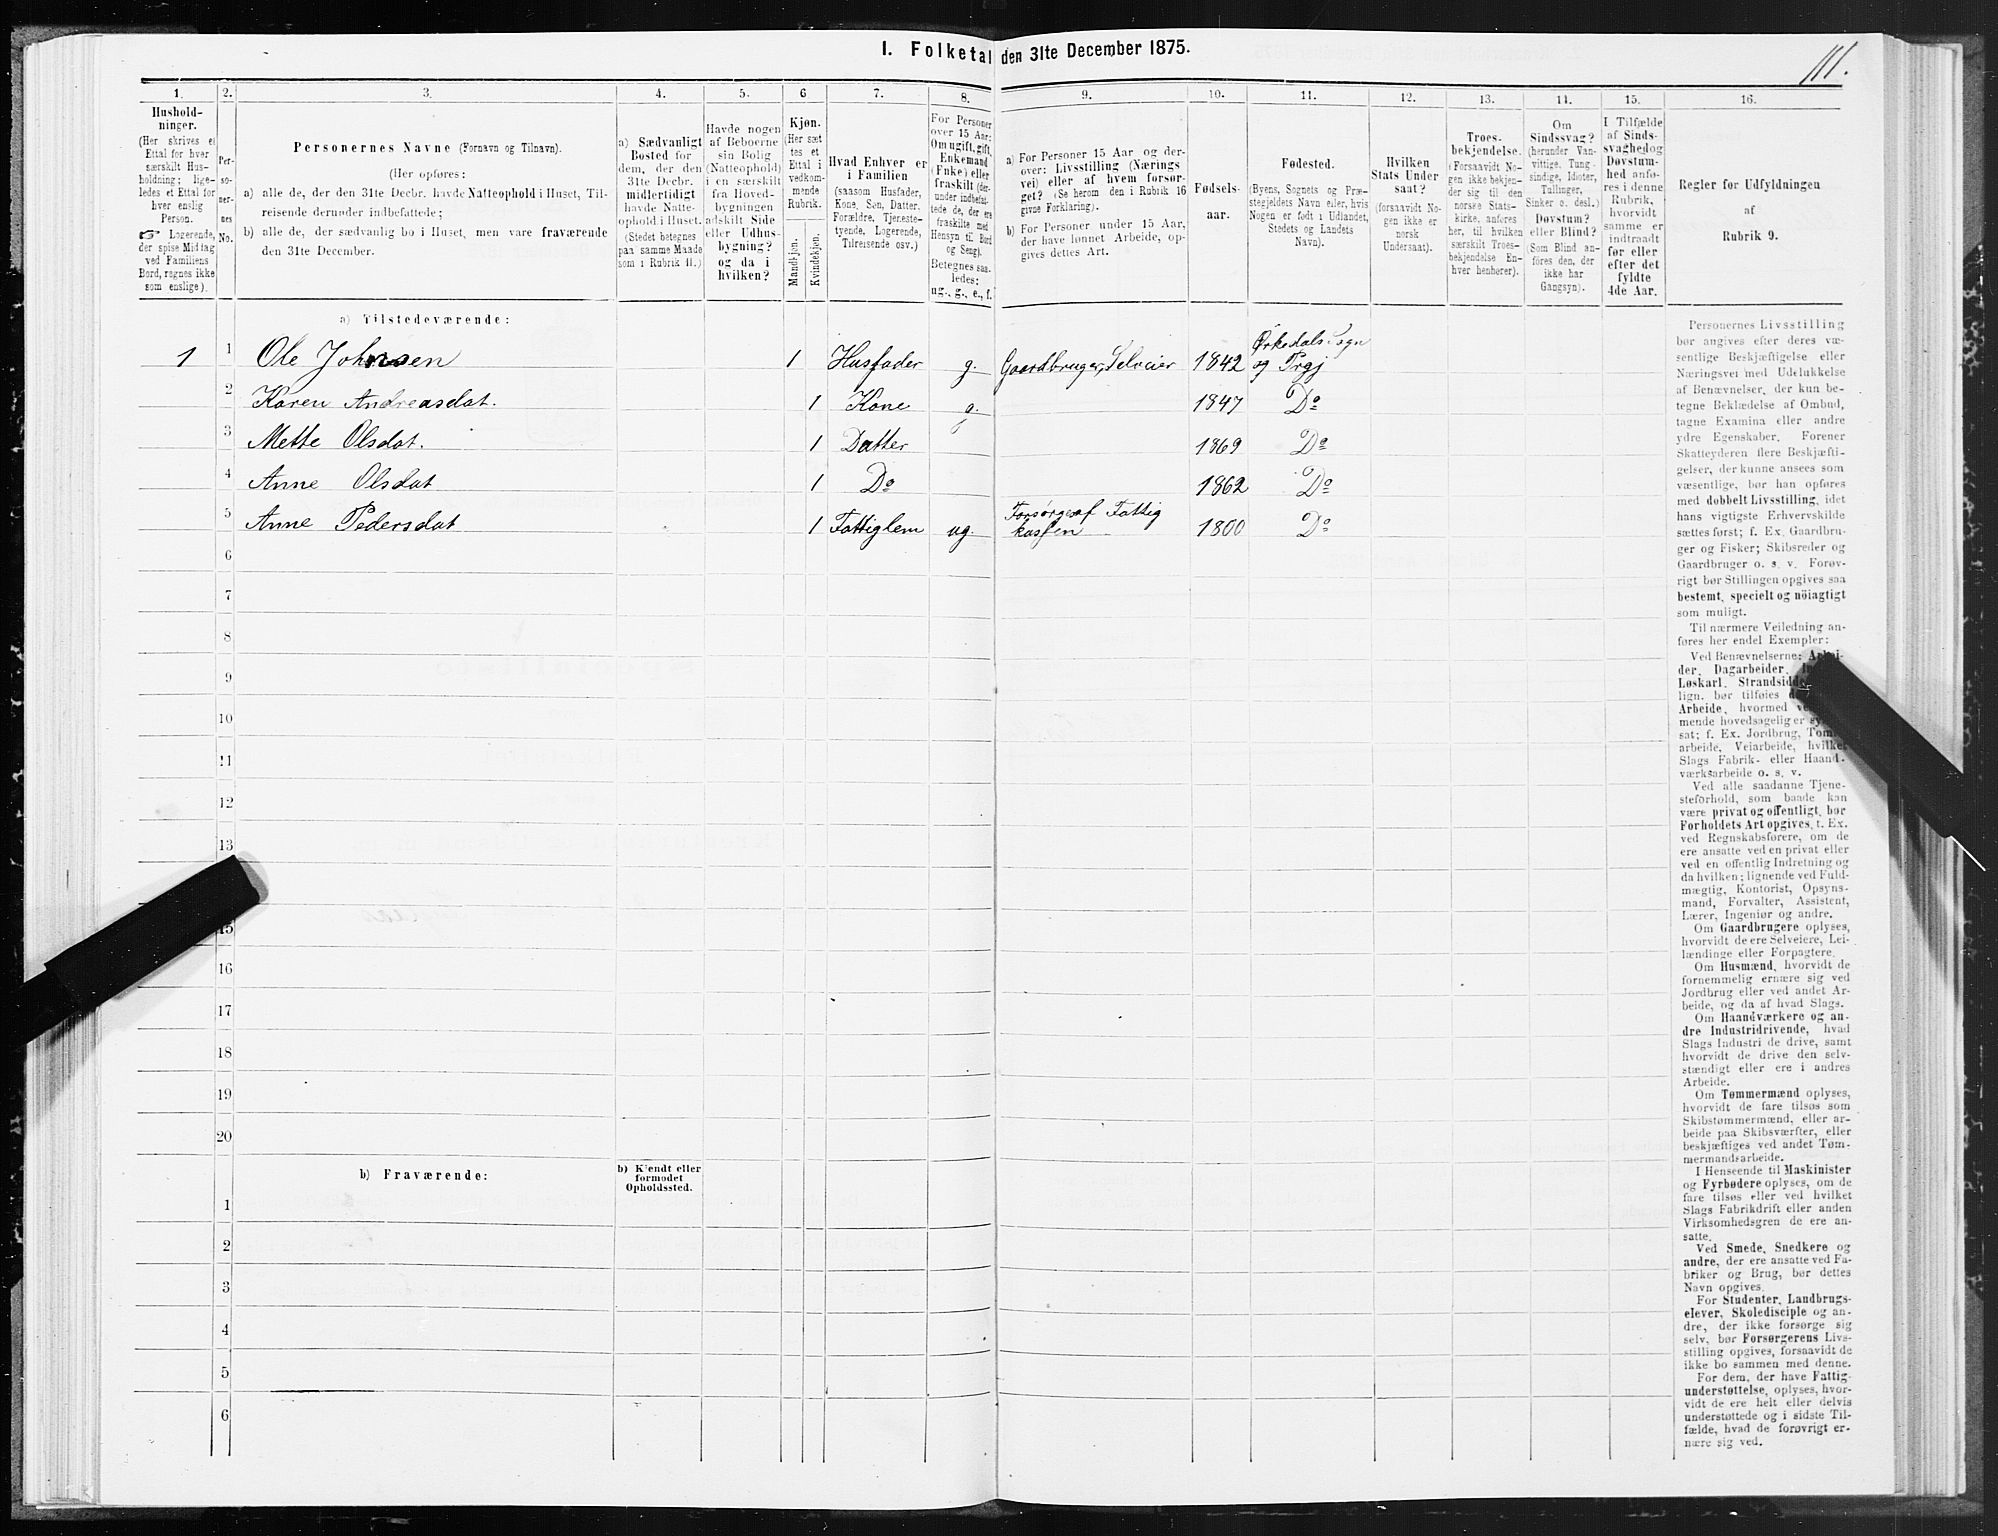 I. Folketal den 31te December 1875.
111.
1.
Hushold-
ninger.
(Her skrives et
Ettal for hver
særskilt Hus-
holdning; lige-
ledes et Ettal for
hver enslig
Person.
☞ Logerende,
der spise Middag
ved Familiens
Bord, regnes ikke
som enslige).
2.
Per-
so-
ner-
nes
No.
3.
Personernes Navne (Fornavn og Tilnavn).
(Her opføres:
a) alle de, der den 31te Decbr. havde Natteophold i Huset, Til-
reisende derunder indbefattede;
b) alle de, der sædvanlig bo i Huset, men vare fraværende
den 31te December.
4.
a) Sædvanligt
Bosted for
dem, der den
31te Decbr.
midlertidigt
havde Natte-
ophold i Huset.
(Stedet betegnes
paa samme Maade
som i Rubrik 11.)
5.
Havde nogen
af Beboerne
sin Bolig
(Natteophold)
i en særskilt
fra Hoved-
bygningen
adskilt Side
eller Udhus-
bygning?
og da i
hvilken?
6
Kjøn.
(Her sæt
tes et
Ettal i
vedkom-
mende
Rubrik.
Mandkjøn.
Kvindekjøn.
7.
Hvad Enhver er
i Familien
(saasom Husfader,
Kone, Søn, Datter,
Forældre, Tjeneste-
tyende, Logerende,
Tilreisende osv.)
8.
For Personer
over 15 Aar:
Om ugift, gift,
Enkemand
(Enke) eller
fraskilt (der-
under indbefat-
tede de, der ere
fraskilte med
Hensyn til Bord
og Seng).
Betegnes saa-
ledes:
ug., g., e., f.
9.
a) For Personer 15 Aar og der-
over: Livsstilling (Nærings
vei) eller af hvem forsør-
get? (Se herom den i Rubrik 16
givne Forklaring).
b) For Personer under 15 Aar,
der have lønnet Arbeide, op-
gives dettes Art.
10.
Fødsels-
aar.
11.
Fødested.
(Byens, Sognets og Præ-
stegjeldets Navn eller, hvis
Nogen er født i Udlandet,
Stedets og Landets
Navn).
12.
Hvilken
Stats Under
saat?
(forsaavidt No-
gen ikke er
norsk
Undersaat).
13.
Troes-
bekjendelse.
(Forsaavidt No-
gen ikke bekjen-
der sig til den
norske Stats-
kirke, anføres
her, til hvilken
særskilt Troes-
bekjendelse En-
hver henhører).
14.
Om
Sindssvag?
(herunder Van-
vittige, Tung-
sindige, Idioter,
Tullinger,
Sinker o. desl.)
Døvstum?
eller Blind?
(Som Blind an-
føres den, der
ikke har
Gangsyn).
15.
I Tilfælde
af Sinds-
svaghed og
Døvstum-
hed anfø-
res i denne
Rubrik,
hvorvidt
samme er
indtraadt
før eller
efter det
fyldte
4de Aar.
16.
Regler for Udfyldningen
af
Rubrik 9.
a) Tilstedeværende:
1 1 Ole Johnsen 1 Husfader g. Gaardbruger, Selveier 1842 Ørkedals Sogn
og Prgj
2 Karen Andreasdat. 1 Kone g. 1847 Do
3 Mette Olsdat. 1 Datter 1869 Do
4 Anne Olsdat 1 Do 1862 Do
5 Anne Pedersdat 1 Fattiglem ug. Forsørges af Fattig
kassen 1800 Do
6
7
8
9
10
11
12
13
15
16
17
18
19
20
b) Fraværende:
b) Kjendt eller
formodet
Opholdssted.
1
2
3
4
5
6
Personernes Livsstilling
bør angives efter deres væ-
sentlige Beskjæftigelse eller
Næringsvei med Udelukkelse
af Benævnelser, der kun be-
tegne Beklædelse af Ombud,
tagne Examina eller andre
ydre Egenskaber. Forener
Skatteyderen flere Beskjæfti-
gelser, der kunne ansees som
væsentlige, bør han opføres
med dobbelt Livsstilling, idet
hans vigtigste Erhvervskilde
sættes først; f. Ex. Gaardbru-
ger og Fisker; Skibsreder og
Gaardbruger o. s. v. Forøv-
rigt bør Stillingen opgives saa
bestemt, specielt og nöiagtigt
som muligt.
Til nærmere Veiledning an-
føres her endel Exempler:
Ved Benævnelserne: Arbei-
der, Dagarbeider,
Løskarl, Strandsidd
lign. bør tilføies
Arbeide, hvormed
mende hovedsagelig er
sat; f. Ex. Jordbrug, Tøm-
arbeide, Veiarbeide, hvilket
Slags Fabrik- eller Haand-
værksarbeide o. s. v.
Ved alle saadanne Tjene-
steforhold, som baade kan
være privat og offentligt, bør
Forholdets Art opgives, t. Ex.
ved Regnskabsførere, om de
ere ansatte ved en privat eller
ved en offentlig Indretning og
da hvilken; lignende ved Fuld-
mægtig, Kontorist, Opsyns-
mand, Forvalter, Assistent,
Lærer, Ingeniør og andre.
Om Gaardbrugere oplyses,
hvorvidt de ere Selveiere, Lei-
lændinge eller Forpagtere.
Om Husmænd, hvorvidt de
fornemmelig ernære sig ved
Jordbrug eller ved andet Ar-
beide, og da af hvad Slags.
Om Haandværkere og an-
dre Industridrivende, hvad
Slags Industri de drive, samt
hvorvidt de drive den selv-
stændigt eller ere i andres
Arbeide.
Om Tømmermænd oplyses,
hvorvidt de fare tilsøs som
Skibstømmermænd, eller ar-
beide paa Skibsværfter, eller
beskjæftiges ved andet Tøm-
mermandsarbeide.
I Henseende til Maskinister
og Fyrbødere oplyses, om de
fare tilsøs eller ved hvilket
Slags Fabrikdrift eller anden
Virksomhedsgren de ere an-
satte.
Ved Smede, Snedkere og
andre, der ere ansatte ved Fa-
briker og Brug, bør dettes
Navn opgives.
For Studenter, Landbrugs-
elever, Skoledisciple og an-
dre, der ikke forsørge sig
selv, bør Forsørgerens Livs-
stilling opgives, forsaavidt de
ikke bo sammen med denne.
For dem, der have Fattig-
understøttelse, oplyses, hvor-
vidt de ere helt eller delvis
understøttede og i sidste Til-
fælde, hvad de forøvrigt er-
nære sig ved.